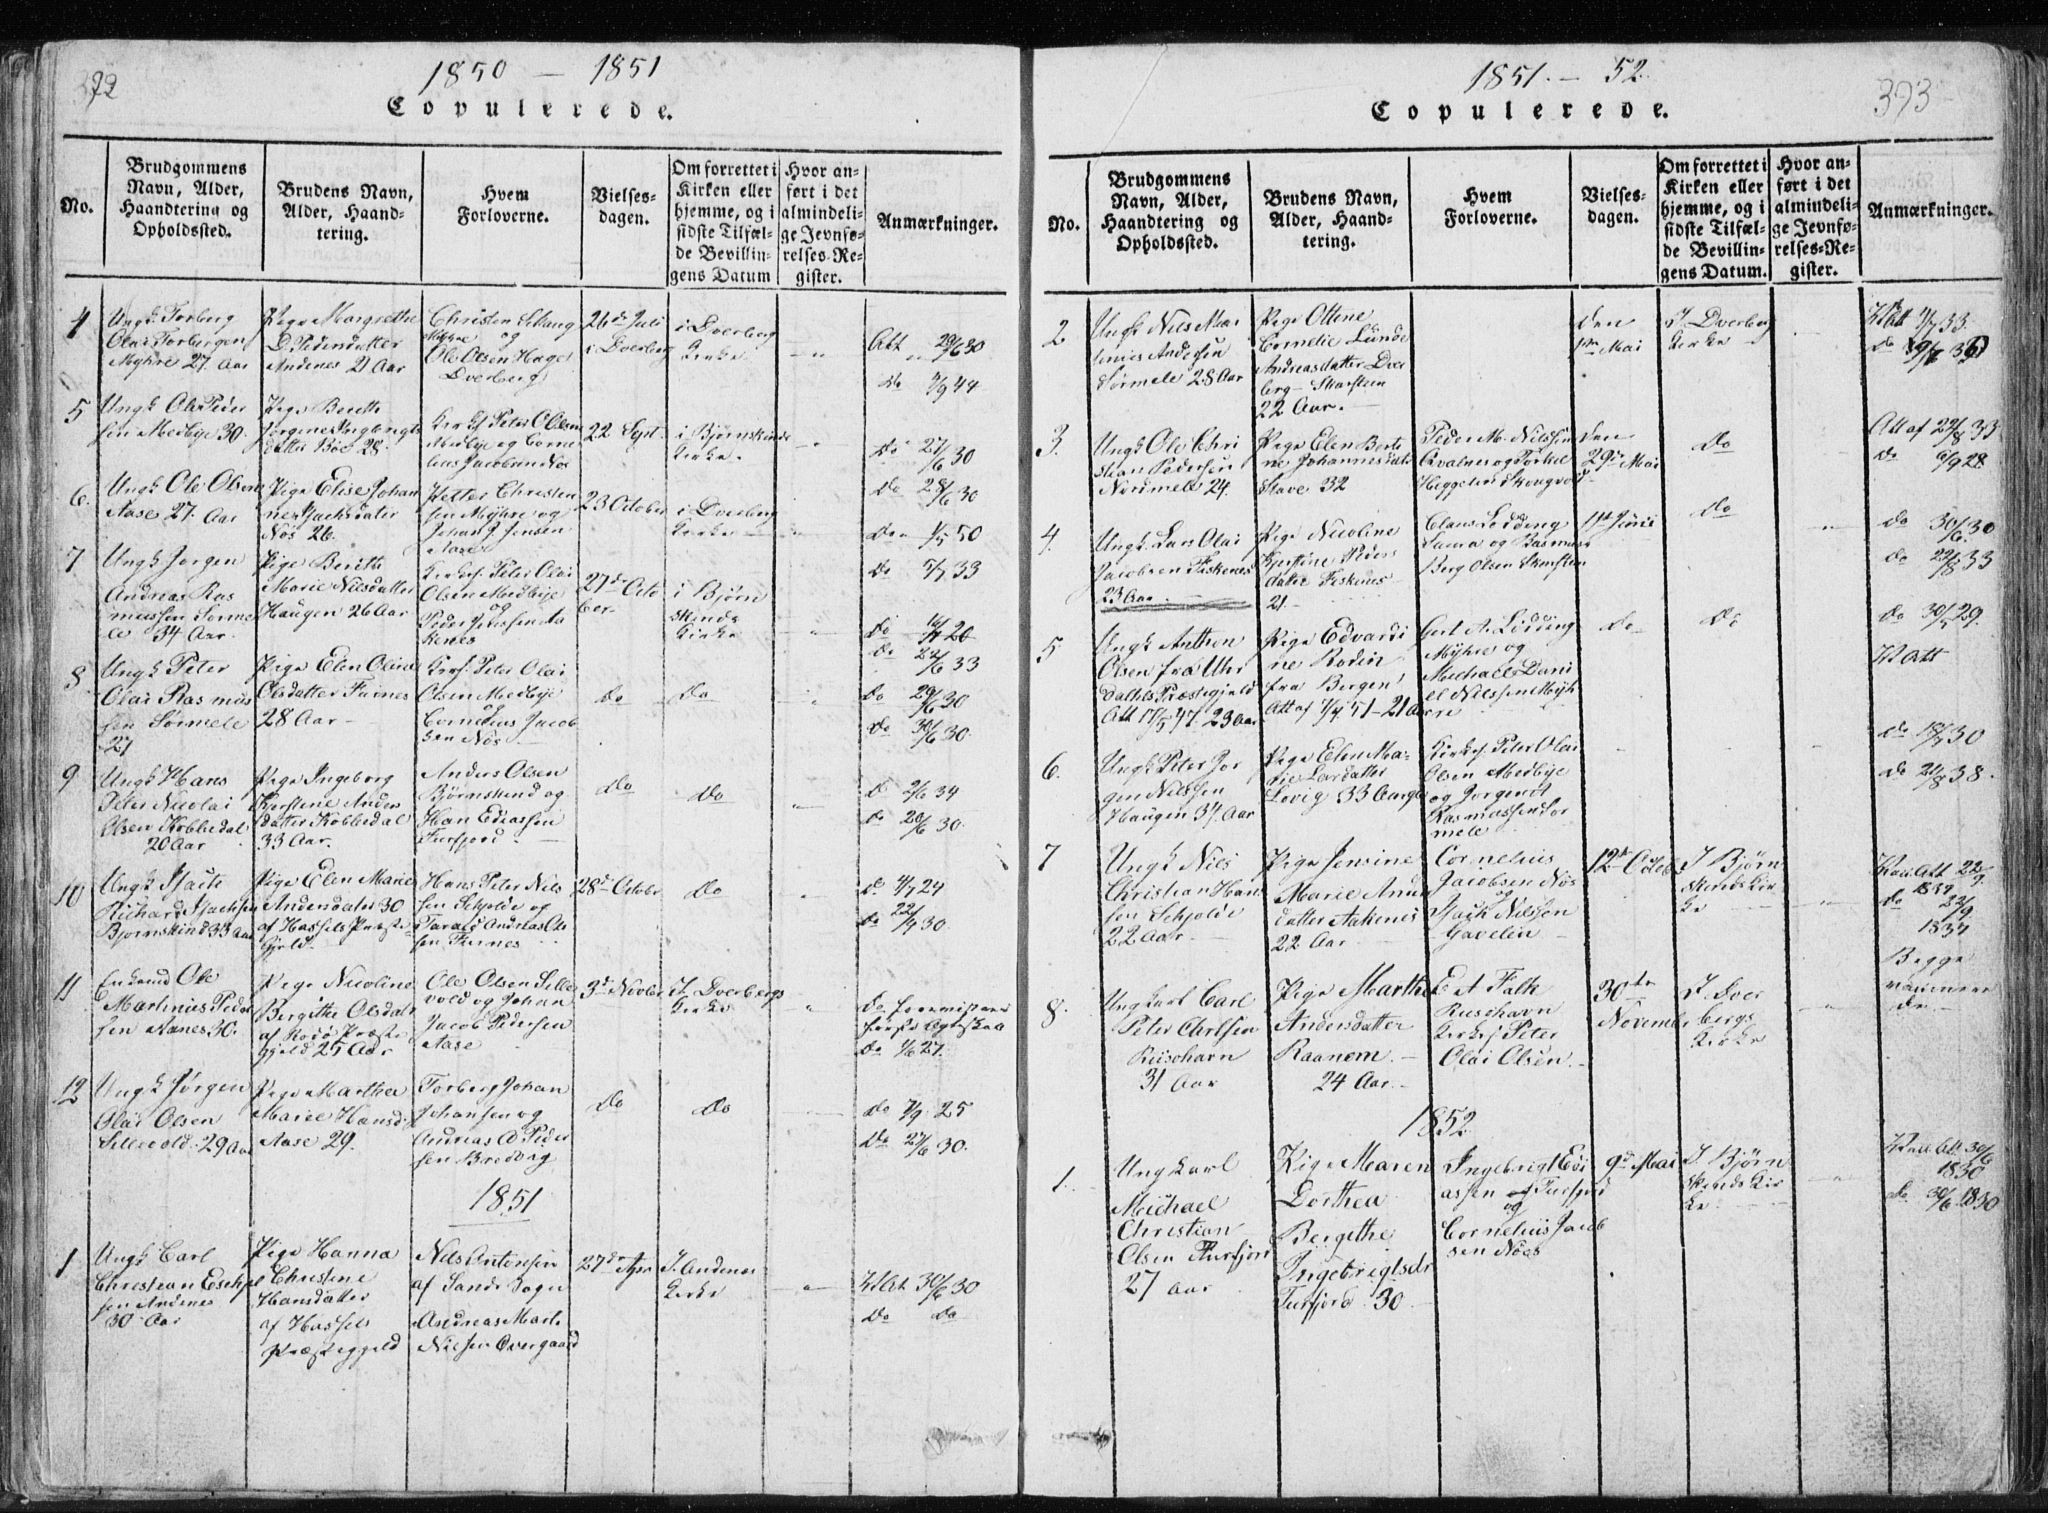 392
1850 - 1851
Copulerede.
No.
Brudgommens
Navn, Alder,
Haandtering og
Opholdssted.
Brudens Navn,
Alder, Haand-
tering.
Hvem
Forloverne.
Vielses-
dagen.
Om forrettet i
Kirken eller
hjemme, og i
sidste Tilfæl-
de Bevillin-
gens Datum
Hvor an-
ført i det
almindeli-
ge Jevnfø-
relses-Re-
gister.
Anmærkninger.
4
Ungk Torberg
Olai Torbergsen
Myhre 27. Aar
Pige Margrethe
D. Pedersdatter
Andenes 21 Aar
Christen
Myhre og
Ole Olsen Hage
Dverberg
26de Juli
i Dverberg
i Dverberg
Kirke
Att 29/6 30
do 7/9 44
5
Ungk Ole Peder
sen Medbye 30.
Pige Berethe
Jørgine Ingebrigts
datter Bøe 28.
Kirks. Peter O Olsen
Medbye og Corne
lius Jacobsen Nøs
22 Sept.
i Bjørnskinds
Kirke.
Do 27/6 30
Do 28/6 30
6.
Ungk Ole Olsen
Aase 27. Aar
Pige Elise Johan
ne Isachsdatter
Nøs 26.
Petter Christen
sen Myhre og
Johan J. Jensen
Aase
23 October
i Dverberg
Kirke
Do 1/5 50
Do 5/7 33
7
Ungk Jørgen
Andreas Ras
mussen Sørme
le 34 Aar.
Pige Berith
Marie Nilsdatter
Haugen 26 Aar
Kirkes. Peter Olai
Olsen Medbye
og
Peder Jensen Aa
kenes
27de Octo
ber.
i Bjørn
skinds
Kirke
Do
Do 22/6 33
8
Ungk Peter
Olai Rasmus
sen Sørmele
27
Pige Elen Oline
Olsdatter Furnes
28 Aar
Kirks. Peter Olai
Olsen Medbye
og
Cornelius Jacob
sen Nøs
Do
Do
Do 29/6 30
Do 30/6 30.
9
Ungk Hans
Peter Nicolai
Olsen Kobbedal
20 Aar
Pige Ingeborg
Kjerstine Anders
datter Kobbedal
33 Aar.
Anders Olsen
Bjørnskind og
Hans Ediassen
Furfjord.
Do
Do
D 2/6 34
Do 20/6 30.
10
Ungk Isach
Richard Isachsen
Bjørnskind 33 Aar
Pige Elen Marie
Andersdatter 30
af Hassels Præste
gjeld.
Hans Peter Nils
sen Schjolde og
Tarald Andreas Ol
sen Furnes
28de October
Do
Do 4/7 24
Do 22/7 30.
11
Enkemd Ole
Martinus Peder
sen Aanes 30.
Pige Nicoline
Bergitte Olsdatr
af Rødø Præste
gjeld 25 Aar
Ole Olsen Selle
vold og Johan
Jacob Pedersen
Aase
3de Novbr
I Dverbergs
Kirke
Do
Do 1/6 27.
12
Ungk Jørgen
Olai Olsen
Sellevold. 29 Aar
Pige Marthea
Marie Hansd
Aase 29.
Torberg Johan
Johansen og
Andreas O Peder
sen Bredvig
Do
Do
Do 7/9. 25
Do 27/6 30.
1851
1
Ungk Carl
Christian Eschil
sen Andenes
30 Aar
Pige Hanna
Christine
Hansdatter
af Hassels
Præstegjeld
Nils Antonsen
af Sands Sogn
Andreas Mart.
Nielsen Overgaard
27de Apr
I Andenes
Kirke
Att 30/6 30
Do Do
1851. - 52.
393
Copulerede.
No.
Brudgommens
Navn, Alder,
Haandtering og
Opholdssted.
Brudens Navn,
Alder, Haand-
tering.
Hvem
Forloverne.
Vielses-
dagen.
Om forrettet i
Kirken eller
hjemme, og i
sidste Tilfæl-
de Bevillin-
gens Datum.
Hvor an-
ført i det
almindeli-
ge Jevnfø-
relses-Re-
gister.
Anmærkninger.
2
Ungk Nils Mar
tinus Andersen
Sørmele 28 Aar
Pige Ottene
Cornelie Lunde
Andreasdatter Dver
berg - Skarstein
22 Aar.
Den
1ste Mai
I Dverberg
Kirke
Att 4/7 33.
3.
Ungk Ole Chri
stian Pedersen
Nordmele 24.
Pige Elen Berte
ne Johannesdatr
Stave 32
Peder M. Nilssen
Qvalnes og Torkel
Heggelun Skougvold
Den
29de Mai
Do
Att af 22/8 33
do 6/9 28
4.
Ungk Lars Olai
Jacobsen Fiskenes
23 Aar
Pige Nicoline
Kjerstine Peders
datter Fiskenes
21.
Claus Lodding
Saura og Rasmus
Berg Olsen Skarstein
11te Juni
Do
Do 30/6 30
Do 22/8 33
5
Ungk Anthon
Olsen fra Uhr
dahls Præstegjeld
Att 17/5 47. 23 Aar
Pige Edvardi
ne Rodin
fra Bergen,
Att af 1/4 51 - 21 Aar
Gert A. Lodding
Myhre og
Michael Dani
el Nilssen Myh
re
do
Do
Do 30/5 29.
Att
6.
Ungk Peter Jør
gen Nilssen
Haugen 34 Aar
Pige Elen Ma-
rie Larsdatter
Lovig 33 Aar
Kirks. Peter Olai
Olsen Medbye
og Jørgen A
Rasmussen Sør
mele
Do 18/7 30
Do 21/8 38.
7
Ungk Nils
Christian Han
sen Schjolde
22 Aar
Pige Jensine
Marie Anun
datter Aakenes
22 Aar
Cornelius
Jacobsen Nøs
og
Isach Nilssen
Gavelen
12te Octob
I Bjørn
skinds Kir
ke
Att 22/9
1834
do 22/9
1834
8.
Ungkarl Carl
Peter Carlsen
Riisøhavn
31 Aar
Pige Marthe
Andersdatter
Raanem.
24 Aar.
E A Falk
Risøehavn
Kirkes. Peter
Olai Olsen.
30te
Novemb
I Dver
bergs
Kirke
Begge
1852
1.
Ungkarl
Michael
Christian
Olsen Furfjord
27 Aar
Pige Maren
Dorthea
Bergethe
Ingebrigtsdr
Furfjord. 30
Ingebrigt Edi
assen Furfjord
og
Cornelius Jacob
sen Nøes
9de Mai
I Bjørn
skinds Kir
ke
Att 30/6
1830
do 30/6 1830